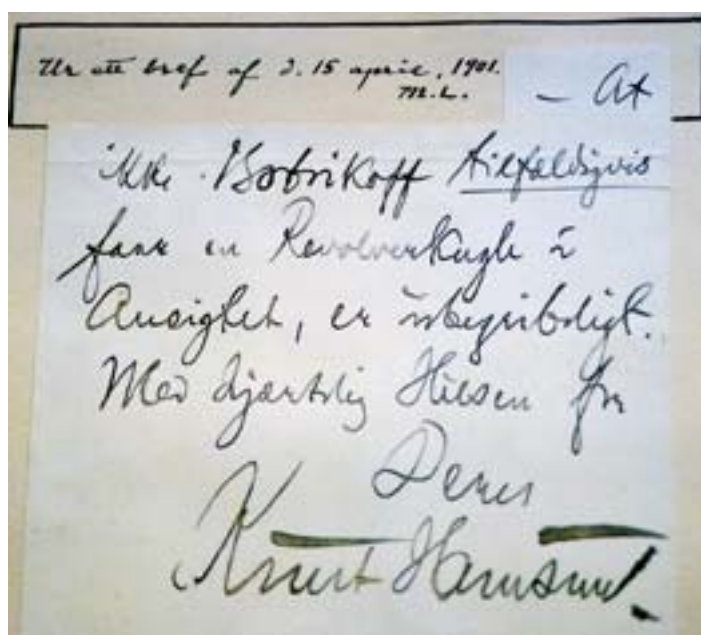 Ur ett bref af d. 15 april, 1901.
M.L.
– At
ikke Bobrikoff tilfældigvis
faar en Revolverkugle i
Ansigtet, er ubegribeligt.
Med hjærtelig Hilsen fra
Deres
Knut Hamsund.